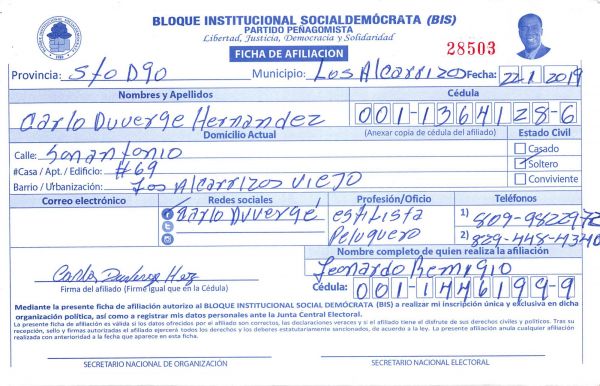 BLOQUE INSTITUCIONAL SOCIALDEMÓCRATA (BIS)
PARTIDO PEÑAGOMISTA
Libertad, Justicia, Democracia y Solidaridad
FICHA DE AFILIACION
28503
Provincia: Sto Dgo Municipio: Los Alcarrizos Fecha: 22-1 2019
Nombres y Apellidos
Cédula
Carlo Duverge Hernandez
001-1364128-6
Domicilio Actual
(Anexar copia de cédula del afiliado)
Estado Civil
Calle: Sanantonio
Casado
#Casa / Apt. / Edificio: #69
Soltero
Barrio / Urbanización: Los Alcarrizos Viejo
Conviviente
Correo electrónico
Redes sociales
Profesión/Oficio
Teléfonos
Carlo Duvergé
estilista
Peluquero
1) 809-9822972
2) 829-448-4340
Nombre completo de quien realiza la afiliación
Leonardo Remigio
Firma del afiliado (Firme igual que en la Cédula)
Cédula: 001-1446199-9
Mediante la presente ficha de afiliación autorizo al BLOQUE INSTITUCIONAL SOCIAL DEMÓCRATA (BIS) a realizar mi inscripción única y exclusiva en dicha
organización política, así como a registrar mis datos personales ante la Junta Central Electoral.
La presente ficha de afiliación es válida si los datos ofrecidos por el afiliado son correctos, las declaraciones veraces y si el afiliado tiene el disfrute de sus derechos civiles y políticos. Tras su
recepción, sello y firmas autorizadas el afiliado ejercerá todos los derechos y los deberes estatutariamente sancionados, de acuerdo a la ley. La presente afiliación anula cualquier afiliación
realizada con anterioridad a la fecha que aparece en esta ficha.
SECRETARIO NACIONAL DE ORGANIZACIÓN
SECRETARIO NACIONAL ELECTORAL